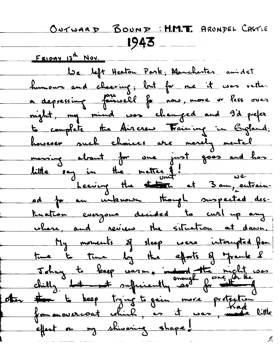 OUTWARD BOUND : H.M.T. ARONDEL CASTLE
1943
FRIDAY 12th NOV.
We left Heaton Park, Manchester amidst
humours and cheering, but for me it was rather
a depressing farewell for now, more or less over
night, my mind was changed and I'd prefer
to complete the Aircrew Training in England,
however such choices are merely mental
moving about for one just goes and has
little say in the matter!
Leaving the unit at 3 am, we entrain-
ed for an unknown though suspected des-
tination everyone decided to curl up any
where, and review the situation at dawn.
My moments of sleep were interrupted from
time to time by the efforts of Frank &
Johnny to keep warm, the night was
chilly, sufficiently so enough for one
other to keep trying to gain more protection
from an overcoat which, as it was, had little
effect on my shivering shape!